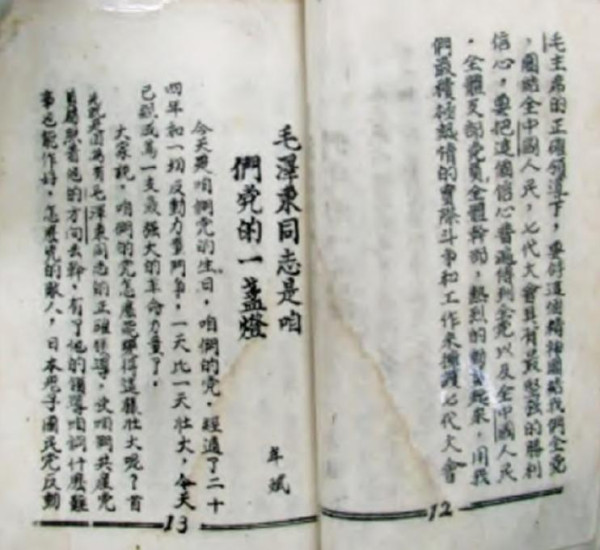 毛主席的正確領導下，要符這個精神團結我們全党
，團結全中國人民，七代大會具有最堅強的勝利
信心，要把這個信心普遍傳到全党以及全中國人民
。全體支部党員全體幹部，熱烈的動員起來，用我
們最積極熱情的實際斗争和工作來擁護七代大會
12
毛澤東同志是咱
們党的一盞燈
年斌
今天是咱們党的生日，咱們的党，經過了二十
四年和一切反動力量鬥爭，一天比一天壯大，今天
已經成爲一支最强大的革命力量了。
大家說，咱們的党怎麼能够得這樣壯大呢？首
先就是因爲有毛澤東同志的正確領導，使咱們共產党
員都照着他的方向去幹，有了他的領導咱們什麼難
事也能作好，怎麼兇的敵人，日本鬼子國民党反動
13